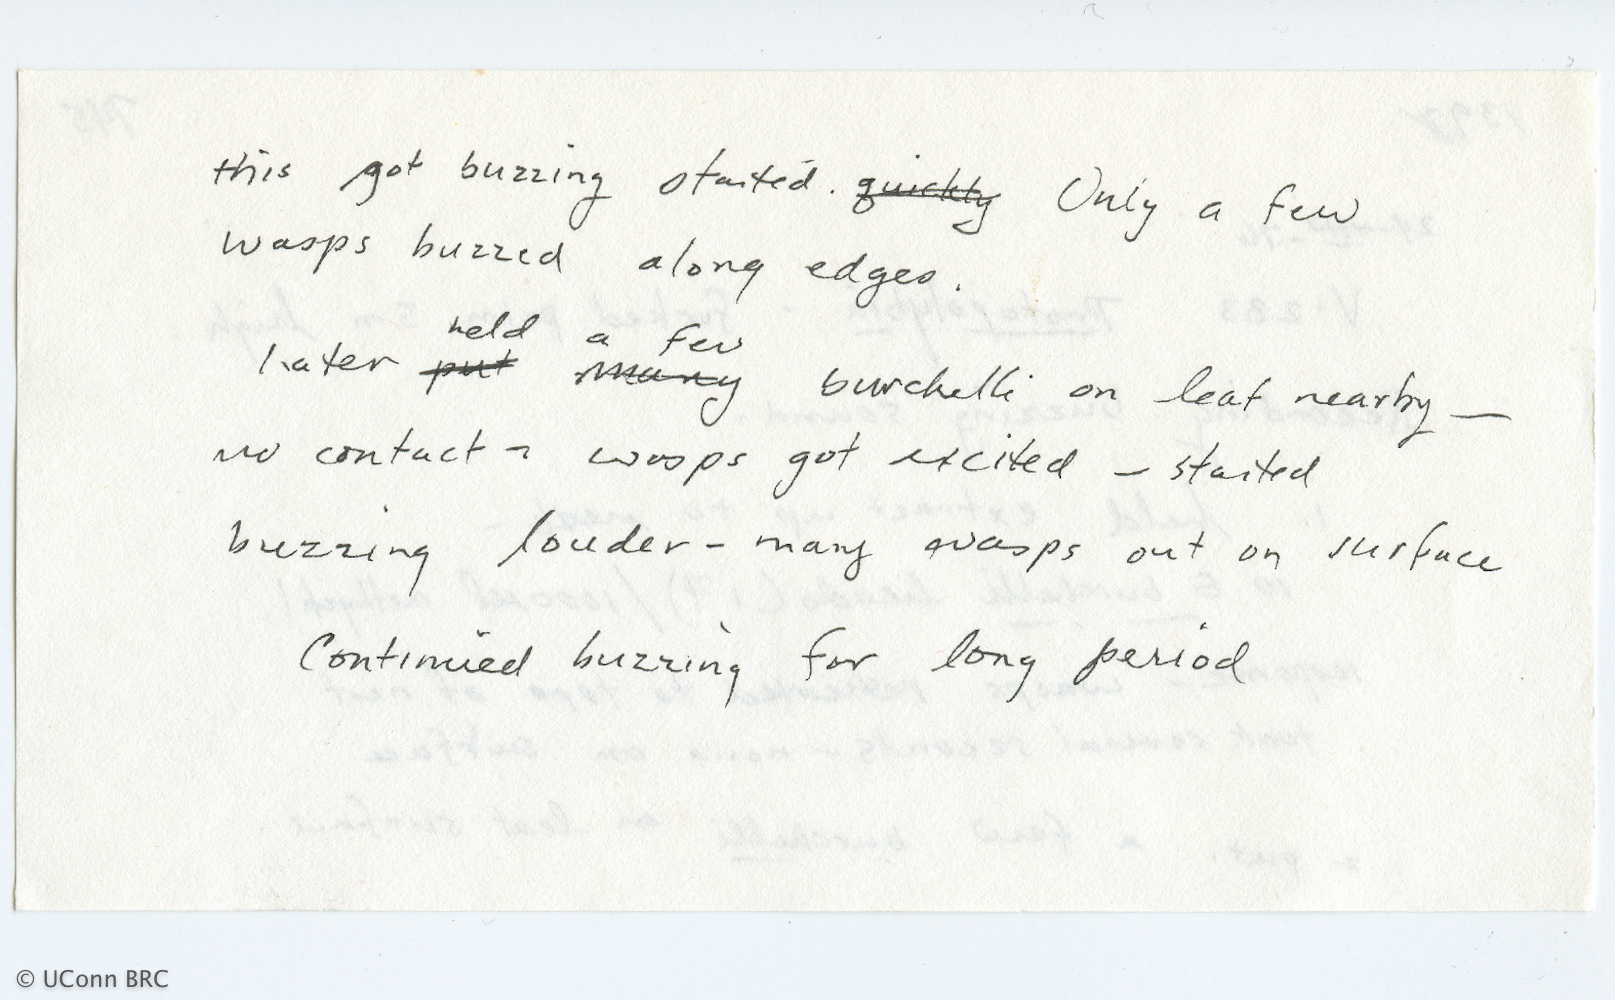 this got buzzing started. quickly Only a few
wasps buzzed along edges.
held a few
Later put many burchelli on leaf nearby —
no contact - wasps got excited - started
buzzing louder - many wasps out on surface
Continued buzzing for long period
© UConn BRC